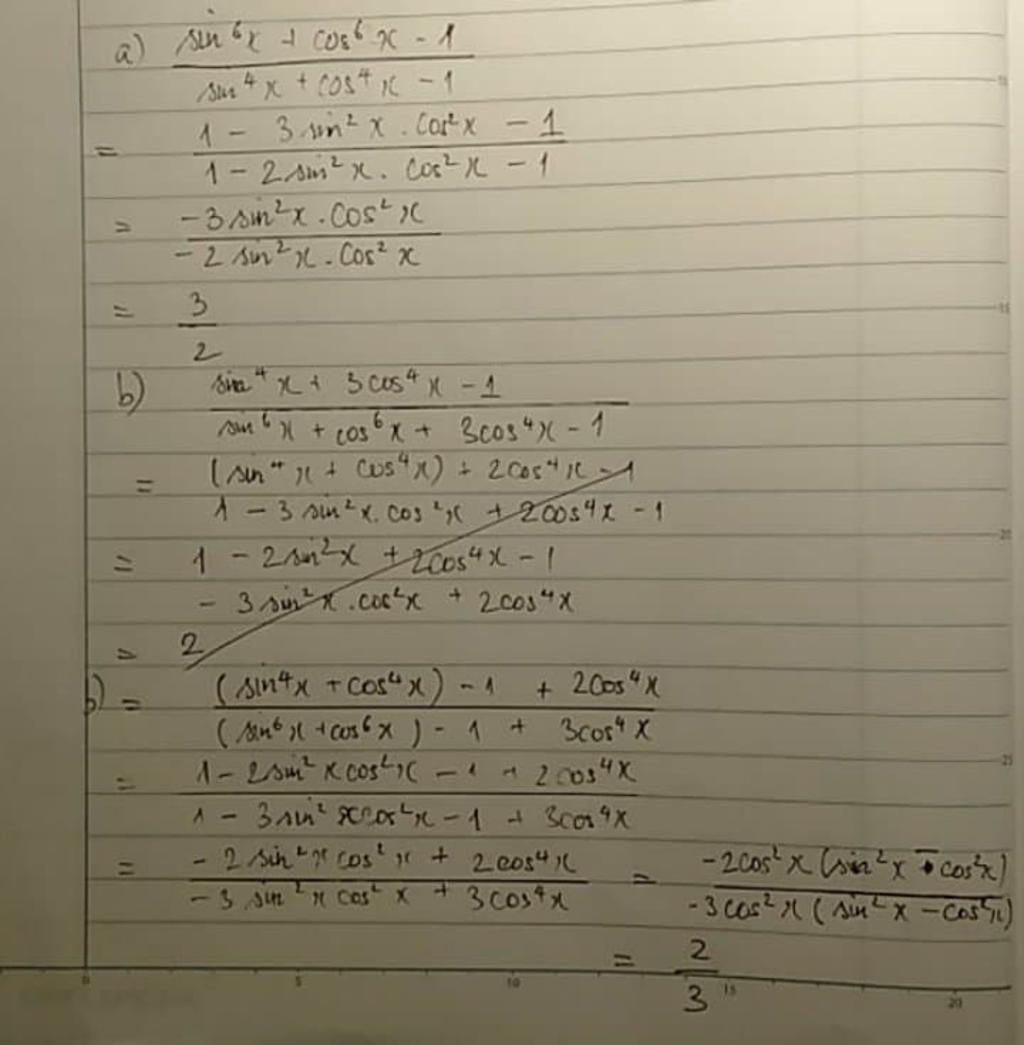 a) sin⁶x + cos⁶x - 1
sin⁴x + cos⁴x - 1
= 1 - 3sin²x . cos²x - 1
1 - 2sin²x . cos²x - 1
= -3sin²x . cos²x
-2sin²x . cos²x
= 3
2
b) sin⁴x + 3cos⁴x - 1
sin⁶x + cos⁶x + 3cos⁴x - 1
= (sin⁴x + cos⁴x) + 2cos⁴x - 1
1 - 3sin²x . cos²x + 2cos⁴x - 1
= 1 - 2sin²x + 2cos⁴x - 1
- 3sin²x . cos²x + 2cos⁴x
= 2
b) = (sin⁴x + cos⁴x) - 1 + 2cos⁴x
(sin⁶x + cos⁶x) - 1 + 3cos⁴x
= 1 - 2sin²x cos²x - 1 + 2cos⁴x
1 - 3sin²x cos²x - 1 + 3cos⁴x
= -2sin²x cos²x + 2cos⁴x = -2cos²x (sin²x - cos²x)
-3sin²x cos²x + 3cos⁴x -3cos²x (sin²x - cos²x)
= 2
3
0 5 10 15 20